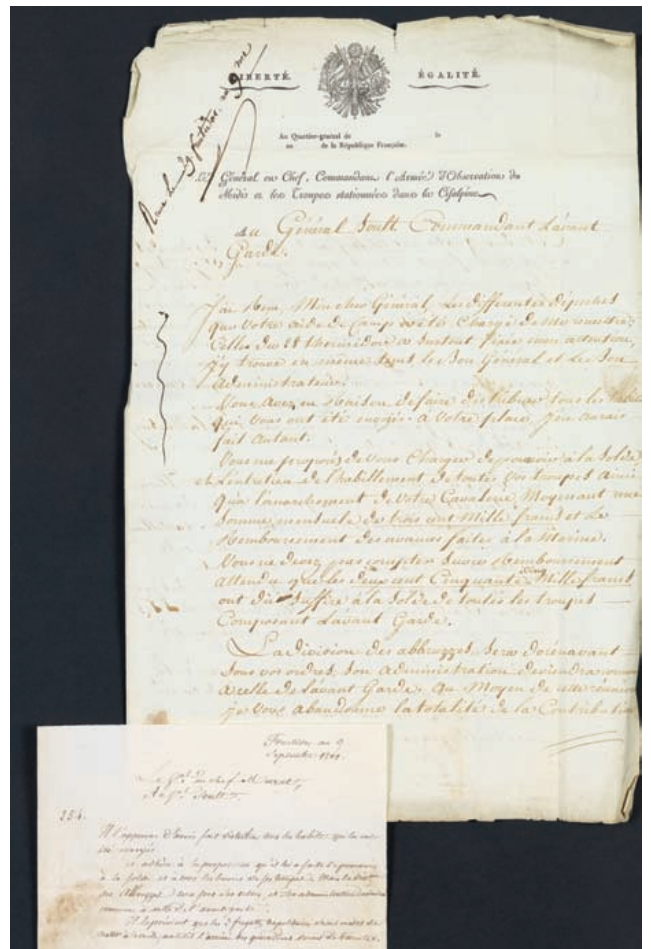 Reçu le 29 fructidor an 9me
LIBERTÉ. ÉGALITÉ.
Au Quartier-général de le
an de la République Française.
Le Général en Chef, Commandant l'Armée d'Observation du
Midi et les Troupes stationnées dans la Cisalpine
Au Général Soult Commandant L'avant
Garde.
J'ai Reçu, Mon cher Général, Les différentes dépêches
que Votre aide de Camp a été Chargé de me remettre,
Celles du 28 thermidor a Surtout fixée mon attention,
j'y trouve en même tems le Bon Général et Le Bon
Administrateur.
Vous Avez eu Raison de faire distribuer tous les habits
qui Vous ont été envoyés. à Votre place j'en aurais
fait Autant.
Vous me proposez de Vous Charger de pourvoir à la Solde
et L'entretien de l'habillement de toutes vos troupes Ainsi
qu'a l'anarchement de Votre Cavalerie, Moyennant une
Somme mensuelle de trois cent Mille francs et Le
Remboursement des avances faites à la Marine.
Vous ne devez pas compter Sur ce Remboursement
attendu que les deux cent Cinquante cinq Mille francs
ont dû Suffire à la Solde de toutes les troupes
Composant L'avant Garde.
La Division des abbruzzes Sera dorénavant
Sous vos ordres, Son administration deviendra commune
à celle de L'avant Garde. Au Moyen de cette réunion
je Vous abandonne la totalité de la Contribution
Fructidor an 9
Septembre 1801.
Le Gal en chef Murat,
Au Gal Soult.
254.
Il l'approuve d'avoir fait distribuer tous les habits qui lui ont
été envoyés.
et adhère à la proposition qu'il lui a faite de pourvoir
à la solde et à tous les besoins
des Abruzzes sera sous ses ordres, et son administration deviendra
commune à celle de l'avant garde.
Il le prévient que les 3 frégates